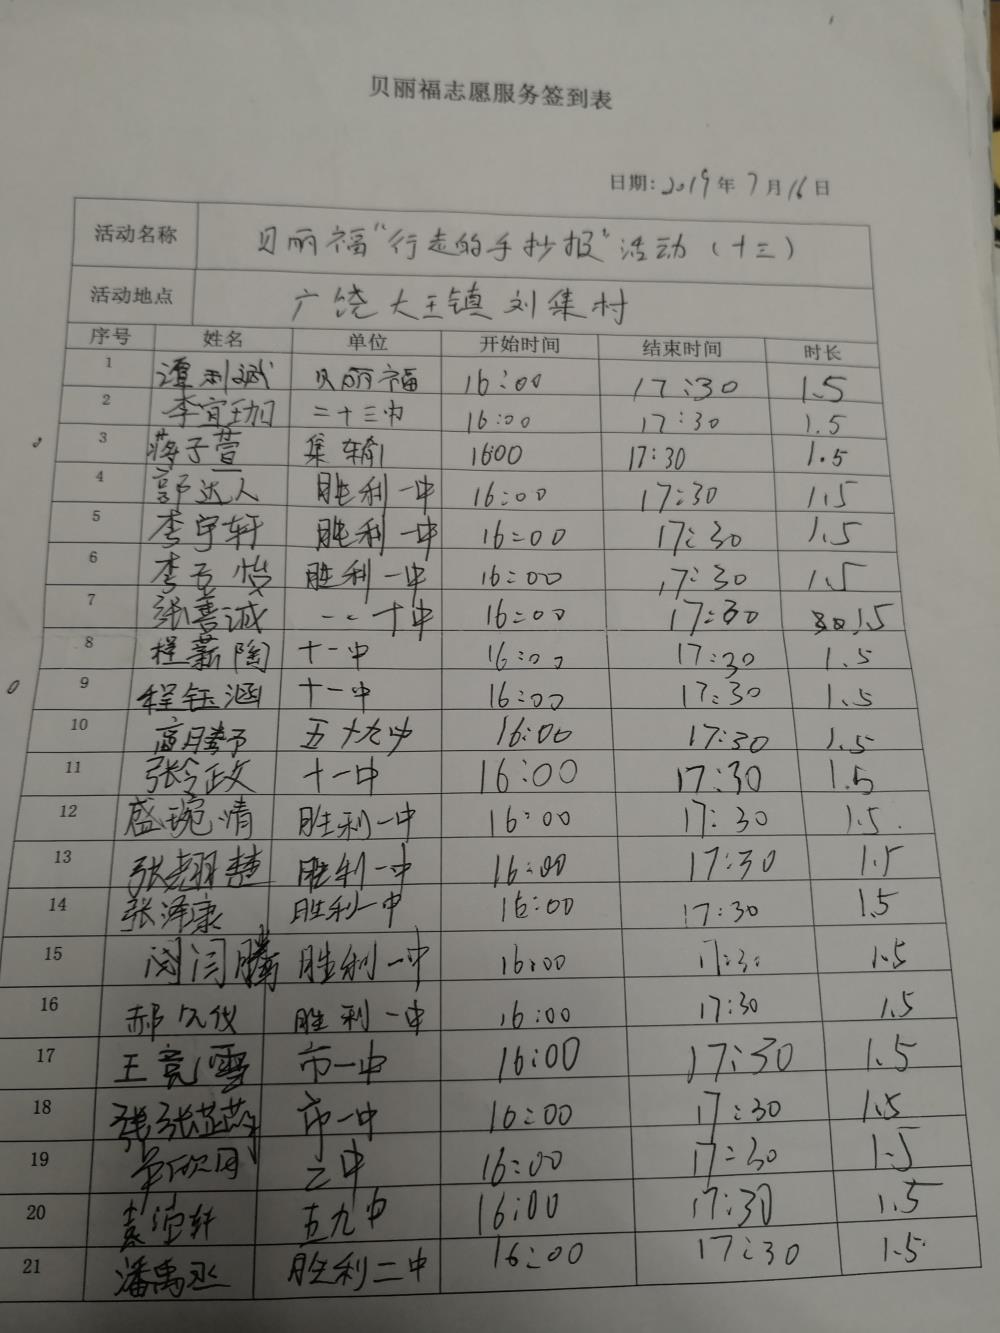 贝丽福志愿服务签到表
日期:2019年7月16日
活动名称 贝丽福"行走的手抄报"活动(十三)
活动地点 广饶大王镇刘集村
序号 姓名 单位 开始时间 结束时间 时长
1 谭利斌 贝丽福 16:00 17:30 1.5
2 李宜珈 二十三中 16:00 17:30 1.5
3 蒋子萱 集输 1600 17:30 1.5
4 郭达人 胜利一中 16:00 17:30 1.5
5 李宇轩 胜利一中 16:00 17:30 1.5
6 李子怡 胜利一中 16:00 17:30 1.5
7 张善诚 十中 16:00 17:30 1.5
8 程薪陶 十一中 16:00 17:30 1.5
9 程钰涵 十一中 16:00 17:30 1.5
10 高腾予 五十九中 16:00 17:30 1.5
11 张令政文 十一中 16:00 17:30 1.5
12 盛琬清 胜利一中 16:00 17:30 1.5
13 张翙楚 胜利一中 16:00 17:30 1.5
14 张泽康 胜利一中 16:00 17:30 1.5
15 闫闫腾 胜利一中 16:00 17:30 1.5
16 郝久仪 胜利一中 16:00 17:30 1.5
17 王竞雪 市一中 16:00 17:30 1.5
18 张芷蔚 市一中 16:00 17:30 1.5
19 二中 16:00 17:30 1.5
20 袁渲轩 五九中 16:00 17:30 1.5
21 潘禹丞 胜利二中 16:00 17:30 1.5